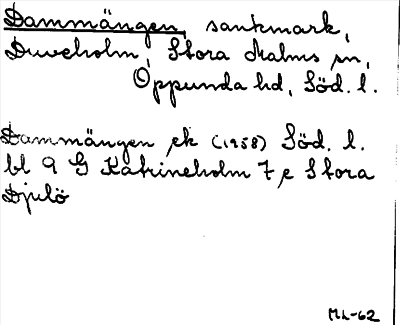 Dammängen, sankmark,
Duveholm, Stora Malms sn,
Oppunda hd, Söd. l.
Dammängen, ek (1958) Söd. l.
bl 9 G Katrineholm 7,e Stora
Djulö
ML-62